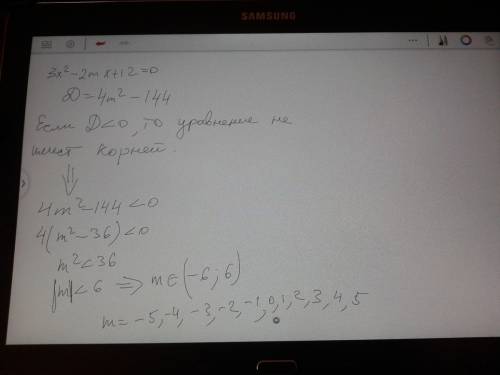 SAMSUNG
3x²-2mx+12=0
D=4m²-144
Если D<0, то уравнение не
имеет корней.
⇓
4m²-144<0
4(m²-36)<0
m²<36
|m|<6 ⇒ m∈(-6; 6)
m=-5,-4,-3,-2,-1,0,1,2,3,4,5